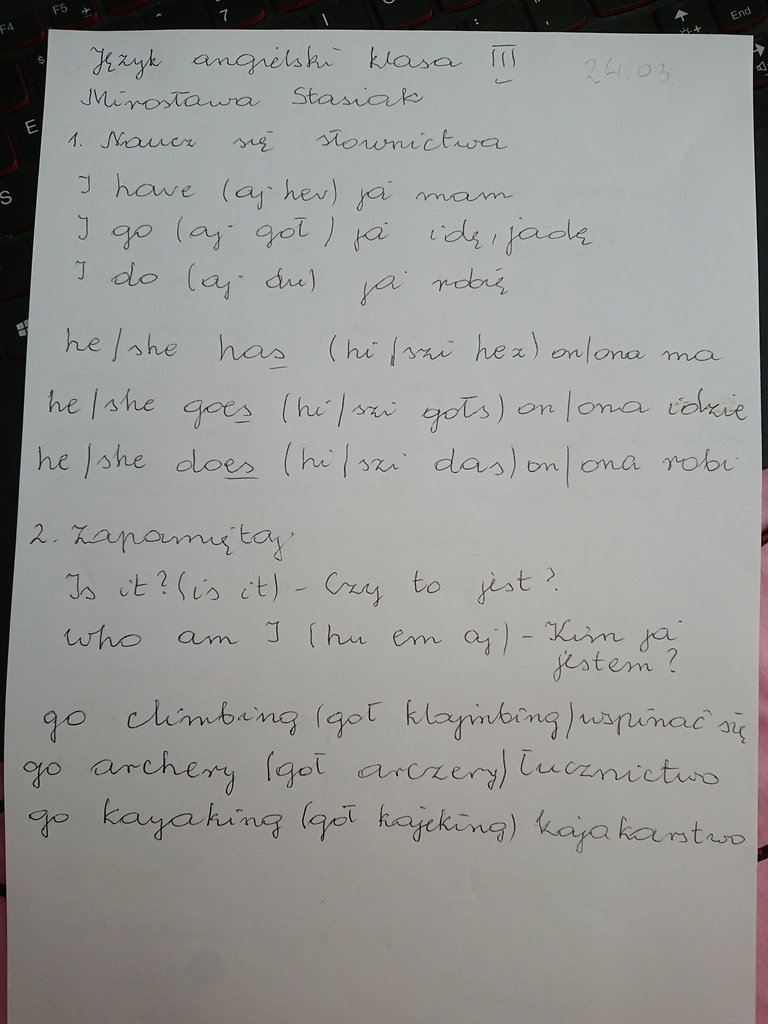 Język angielski klasa III
24.03.
Mirosława Stasiak
1. Naucz się słownictwa
I have (aj hev) ja mam
I go (aj goł) ja idę, jadę
I do (aj du) ja robię
he/she has (hi/szi hez) on/ona ma
he/she goes (hi/szi gołs) on/ona idzie
he/she does (hi/szi das) on/ona robi
2. Zapamiętaj
Is it? (is it) - Czy to jest?
Who am I (hu em aj) - Kim ja
jestem?
go climbing (goł klajmbing) wspinać się
go archery (goł arczery) łucznictwo
go kayaking (goł kajeking) kajakarstwo
F4
F5
7
End
E
S